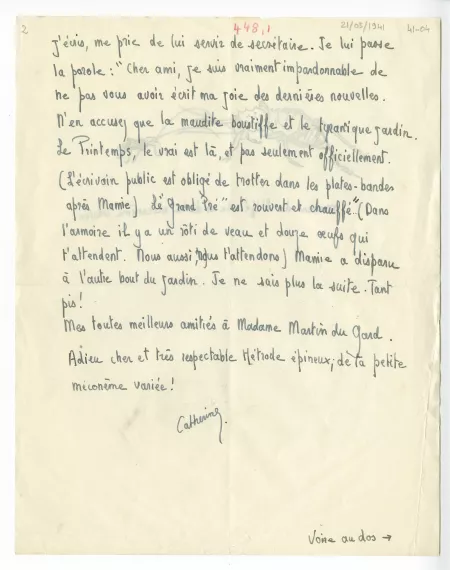 2
448,1
21/03/1941
41-04
j'écris, me prie de lui servir de secrétaire. Je lui passe
la parole : " Cher ami, je suis vraiment impardonnable de
ne pas vous avoir écrit ma joie des dernières nouvelles.
N'en accusez que la maudite boustiffe et le tyrannique jardin.
Le Printemps, le vrai est là, et pas seulement officiellement.
(L'écrivain public est obligé de trotter dans les plates-bandes
après Mamie) Le "Grand Pré" est rouvert et chauffé" (Dans
l'armoire il y a un rôti de veau et douze œufs qui
t'attendent. Nous aussi, nous t'attendons) Mamie a disparu
à l'autre bout du jardin. Je ne sais plus la suite. Tant
pis!
Mes toutes meilleurs amitiés à Madame Martin du Gard.
Adieu cher et très respectable Hétrode épineux; de ta petite
miconème variée!
Catherine.
Voire au dos →